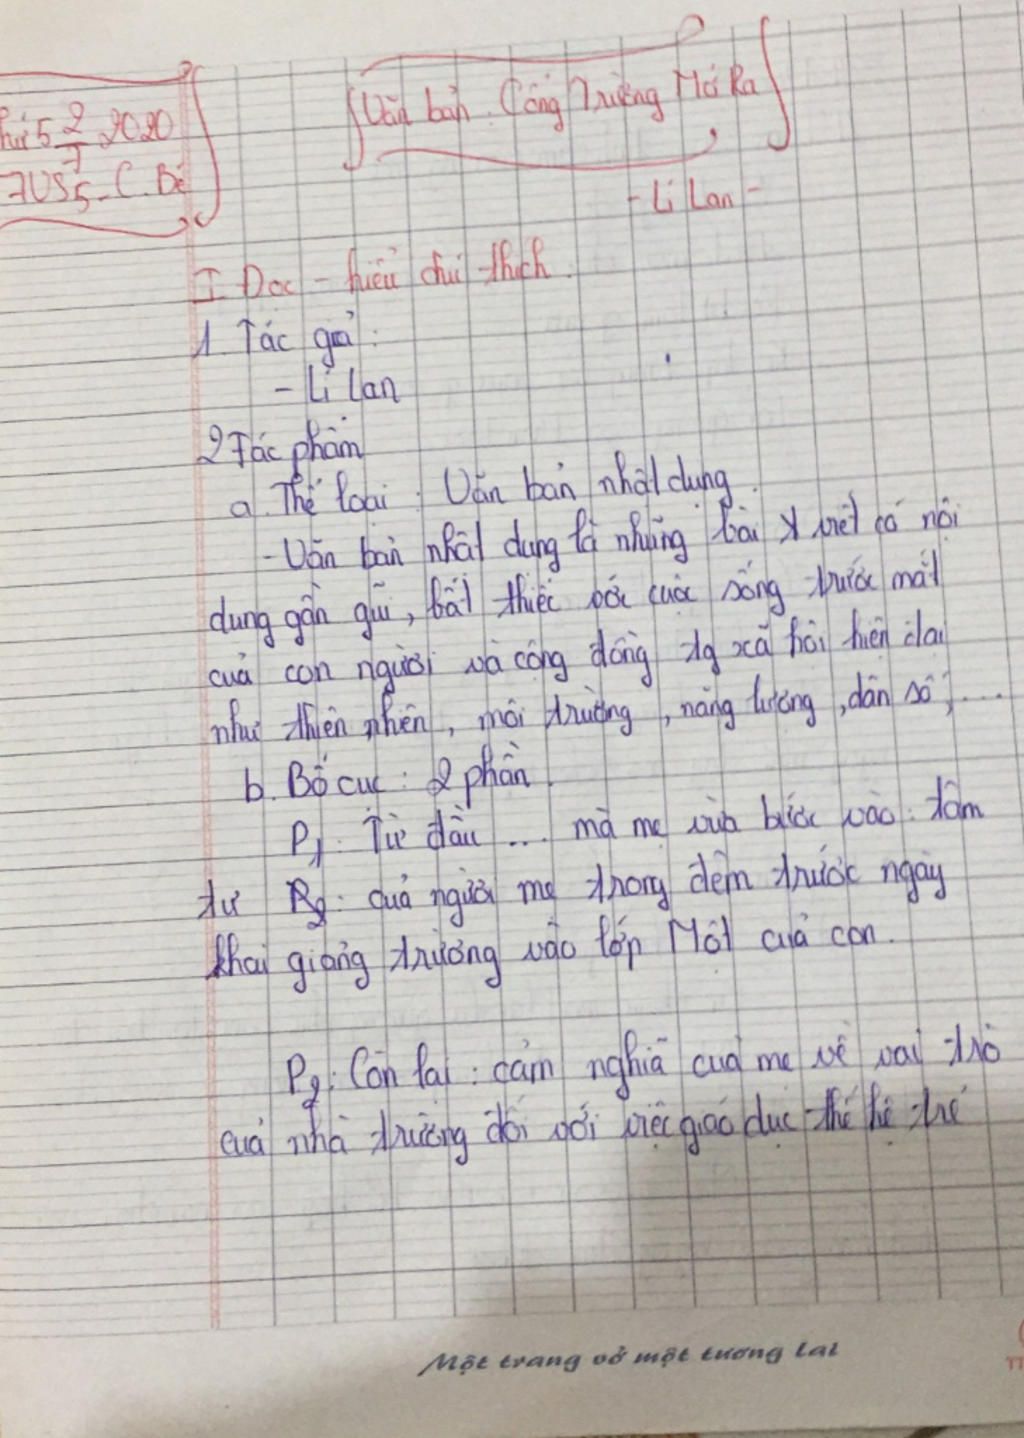 Thứ 5 2/7 2020
7US5 - C. Bé
Văn bản: Cổng Trường Mở Ra
- Lí Lan -
I. Đọc - hiểu chú thích.
1. Tác giả:
- Lí Lan
2. Tác phẩm
a. Thể loại: Văn bản nhật dụng.
- Văn bản nhật dụng là những bài viết có nội
dung gần gũi, bất thiếc với cuộc sống trước mắt
của con người và cộng đồng xã hội hiện đại
như thiên nhiên, môi trường, năng lượng, dân số,....
b. Bố cục: 2 phần.
P1: Từ đầu ... mà mẹ vừa bước vào: tâm
tư của người mẹ trong đêm trước ngày
khai giảng trường vào lớp Một của con.
P2: Còn lại: cảm nghĩa của mẹ về vai trò
của nhà trường đối với việc giáo dục thế hệ trẻ
Một trang vở một tương lai